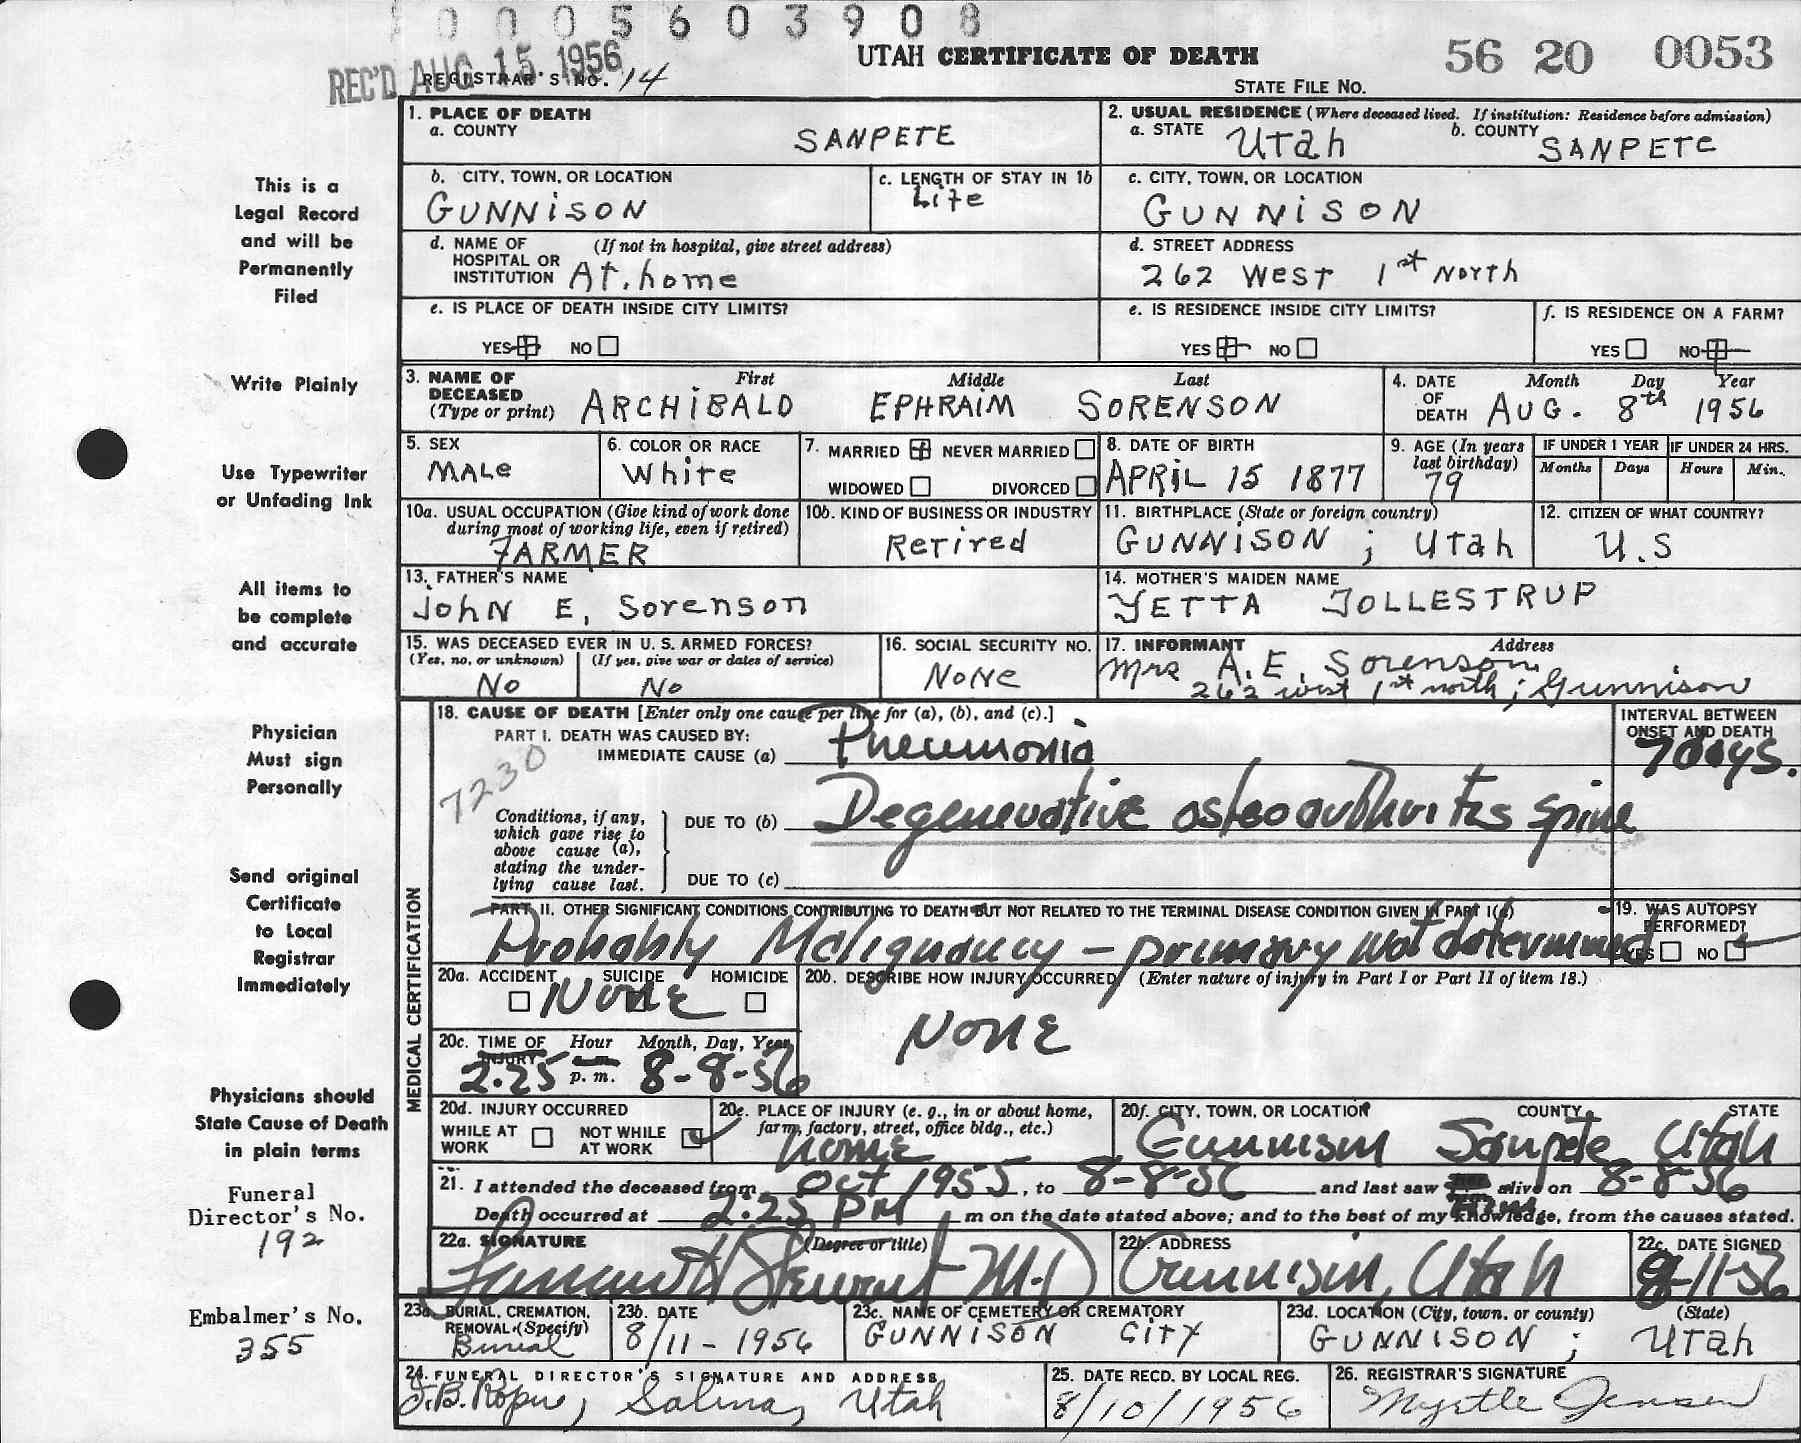 0005603908
REC'D AUG 15 1956
UTAH CERTIFICATE OF DEATH
56 20 0053
REGISTRAR'S NO. 14
STATE FILE NO.
This is a
Legal Record
and will be
Permanently
Filed
Write Plainly
Use Typewriter
or Unfading Ink
All items to
be complete
and accurate
Physician
Must sign
Personally
Send original
Certificate
to Local
Registrar
Immediately
Physicians should
State Cause of Death
in plain terms
Funeral
Director's No.
192
Embalmer's No.
355
1. PLACE OF DEATH
a. COUNTY SANPETE
2. USUAL RESIDENCE (Where deceased lived. If institution: Residence before admission)
a. STATE Utah b. COUNTY SANPETE
b. CITY, TOWN, OR LOCATION
GUNNISON
c. LENGTH OF STAY IN 1b
Life
c. CITY, TOWN, OR LOCATION
GUNNISON
d. NAME OF HOSPITAL OR INSTITUTION (If not in hospital, give street address)
At. home
d. STREET ADDRESS
262 West 1st North
e. IS PLACE OF DEATH INSIDE CITY LIMITS?
YES NO
e. IS RESIDENCE INSIDE CITY LIMITS?
YES NO
f. IS RESIDENCE ON A FARM?
YES NO
3. NAME OF DECEASED (Type or print) First Middle Last
ARCHIBALD EPHRAIM SORENSON
4. DATE OF DEATH Month Day Year
AUG. 8th 1956
5. SEX
MALE
6. COLOR OR RACE
White
7. MARRIED NEVER MARRIED
WIDOWED DIVORCED
8. DATE OF BIRTH
APRIL 15 1877
9. AGE (In years last birthday)
79
IF UNDER 1 YEAR
Months Days
IF UNDER 24 HRS.
Hours Min.
10a. USUAL OCCUPATION (Give kind of work done during most of working life, even if retired)
FARMER
10b. KIND OF BUSINESS OR INDUSTRY
Retired
11. BIRTHPLACE (State or foreign country)
GUNNISON ; Utah
12. CITIZEN OF WHAT COUNTRY?
U.S
13. FATHER'S NAME
John E, Sorenson
14. MOTHER'S MAIDEN NAME
YETTA JOLLESTRUP
15. WAS DECEASED EVER IN U. S. ARMED FORCES?
(Yes, no, or unknown) (If yes, give war or dates of service)
No No
16. SOCIAL SECURITY NO.
NONE
17. INFORMANT Address
Mrs A. E. Sorenson
262 west 1st north ; Gunnison
MEDICAL CERTIFICATION
18. CAUSE OF DEATH [Enter only one cause per line for (a), (b), and (c).]
PART I. DEATH WAS CAUSED BY:
IMMEDIATE CAUSE (a) Pneumonia
INTERVAL BETWEEN ONSET AND DEATH
7 days.
7230
Conditions, if any, which gave rise to above cause (a), stating the underlying cause last.
DUE TO (b) Degenerative osteoarthritis spine
DUE TO (c)
PART II. OTHER SIGNIFICANT CONDITIONS CONTRIBUTING TO DEATH BUT NOT RELATED TO THE TERMINAL DISEASE CONDITION GIVEN IN PART I(a)
Probably Malignancy – primary not determined
19. WAS AUTOPSY PERFORMED?
YES NO
20a. ACCIDENT SUICIDE HOMICIDE
NONE
20b. DESCRIBE HOW INJURY OCCURRED (Enter nature of injury in Part I or Part II of item 18.)
NONE
20c. TIME OF INJURY Hour Month, Day, Year
2.25 p. m. 8-8-56
20d. INJURY OCCURRED
WHILE AT WORK NOT WHILE AT WORK
20e. PLACE OF INJURY (e. g., in or about home, farm, factory, street, office bldg., etc.)
home
20f. CITY, TOWN, OR LOCATION COUNTY STATE
Gunnison Sanpete Utah
21. I attended the deceased from Oct 1955, to 8-8-56 and last saw him alive on 8-8-56
Death occurred at 2.25 PM m on the date stated above; and to the best of my knowledge, from the causes stated.
22a. SIGNATURE (Degree or title)
Lamar H Stewart M.D
22b. ADDRESS
Gunnison, Utah
22c. DATE SIGNED
8-11-56
23a. BURIAL, CREMATION, REMOVAL (Specify)
Burial
23b. DATE
8/11 - 1956
23c. NAME OF CEMETERY OR CREMATORY
GUNNISON CITY
23d. LOCATION (City, town, or county) (State)
GUNNISON ; Utah
24. FUNERAL DIRECTOR'S SIGNATURE AND ADDRESS
J.B. Roper, Salina, Utah
25. DATE RECD. BY LOCAL REG.
8/10/1956
26. REGISTRAR'S SIGNATURE
Myrtle Jensen